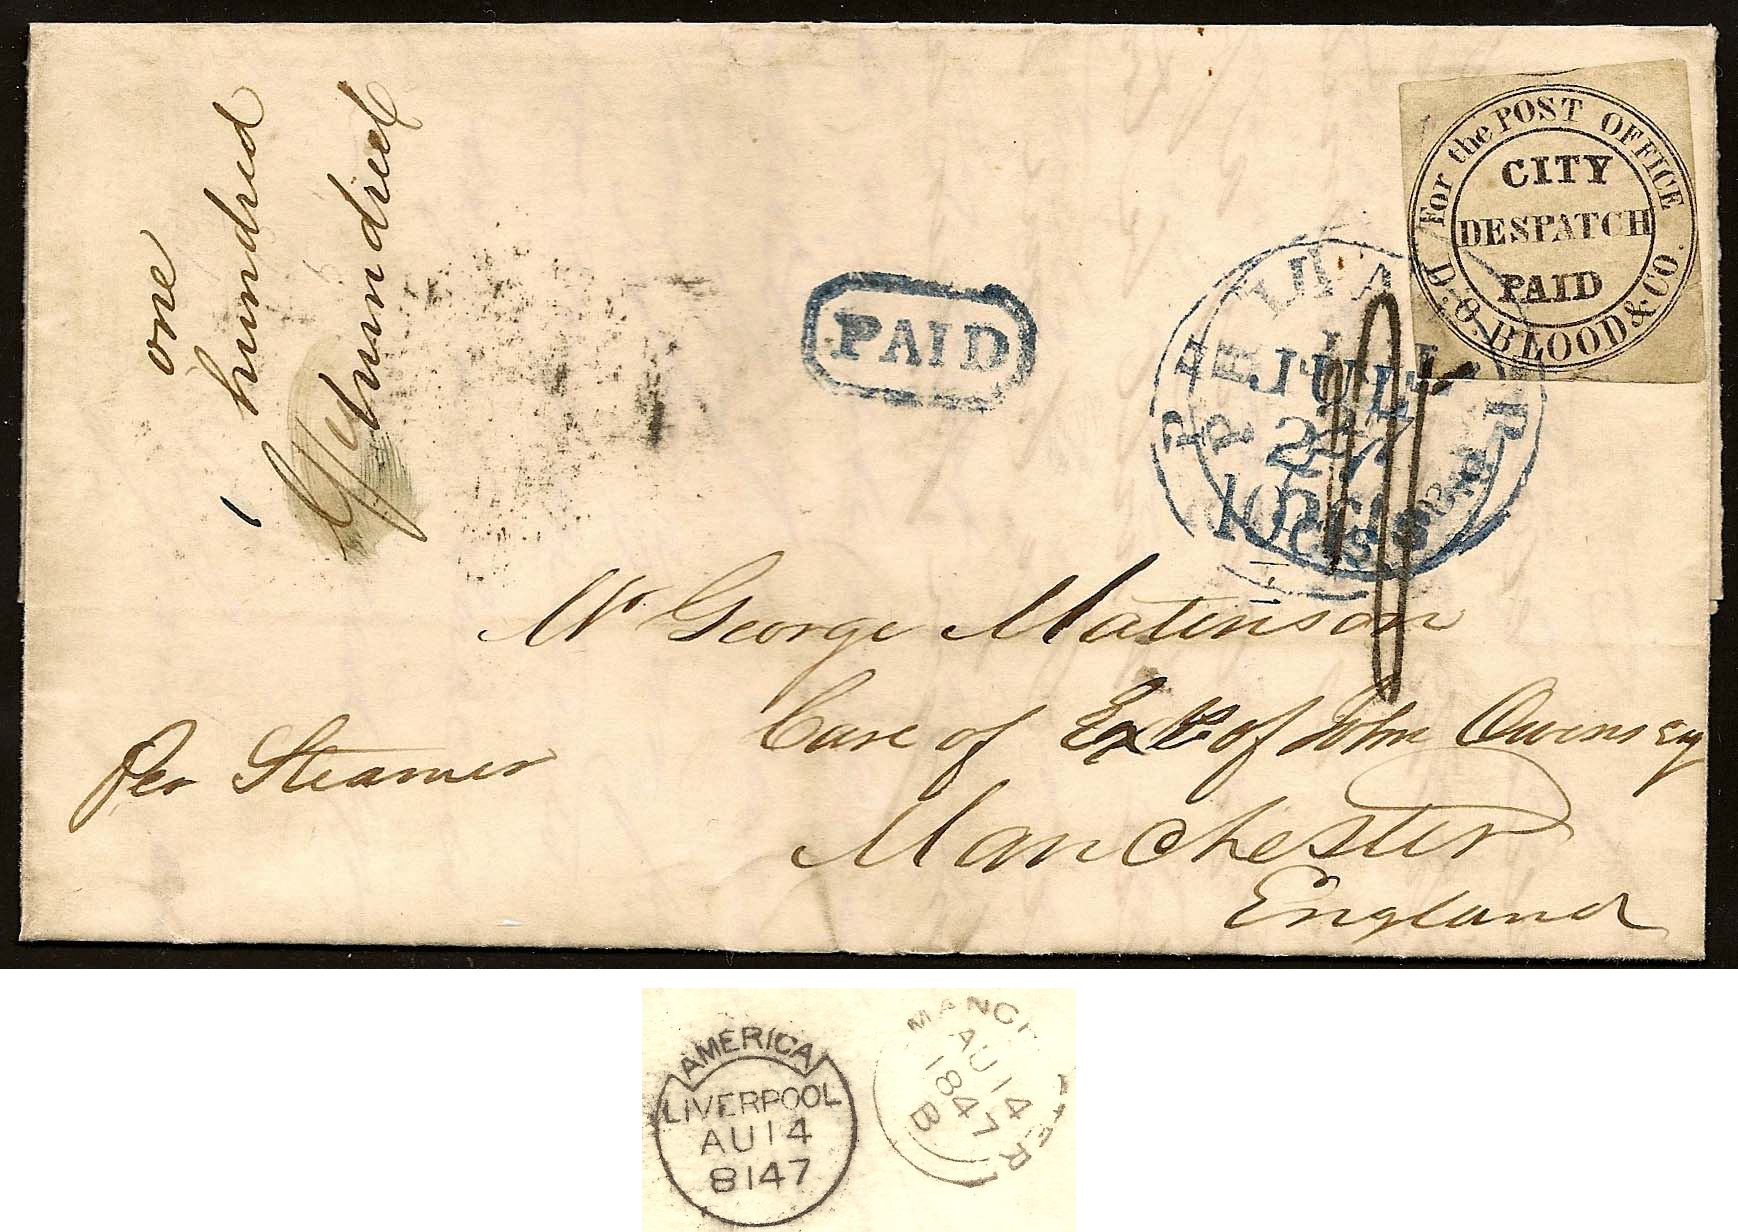 one
hundred
&
hundred
PAID
For the POST OFFICE
CITY
DESPATCH
PAID
D.O. BLOOD & CO.
JUL
27
10 cts
Mr George Matinson
Care of Exrs of John Owens Esq
Manchester
England
Per Steamer
AMERICA
LIVERPOOL
AU 14
8147
MANCH TER
AU 14
1847
B